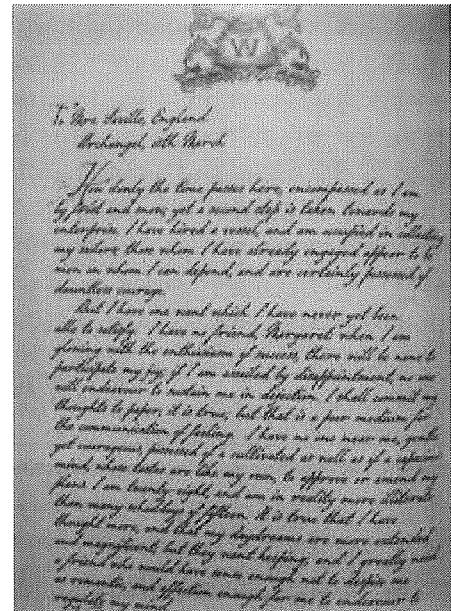 W
To Mrs Saville, England
Archangel, March
How slowly the time passes here, encompassed as I am
by frost and snow, yet a second step is taken towards my
enterprise. I have hired a vessel, and am occupied in collecting
my sailors, those whom I have already engaged appear to be
men on whom I can depend, and are certainly possessed of
dauntless courage.
But I have one want which I have never yet been
able to satisfy. I have no friend, Margaret when I am
glowing with the enthusiasm of success, there will be none to
participate my joy, if I am assailed by disappointment, no one
will endeavour to sustain me in dejection. I shall commit my
thoughts to paper, it is true, but that is a poor medium for
the communication of feeling. I have no one near me, gentle
yet courageous, possessed of a cultivated as well as of a capacious
mind, whose tastes are like my own, to approve or amend my
plans I am twenty eight, and am in reality more illiterate
than many schoolboys of fifteen. It is true that I have
thought more, and that my daydreams are more extended
and magnificent, but they want keeping, and I greatly need
a friend who would have sense enough not to despise me
as romantic, and affection enough for me to endeavour to
regulate my mind.